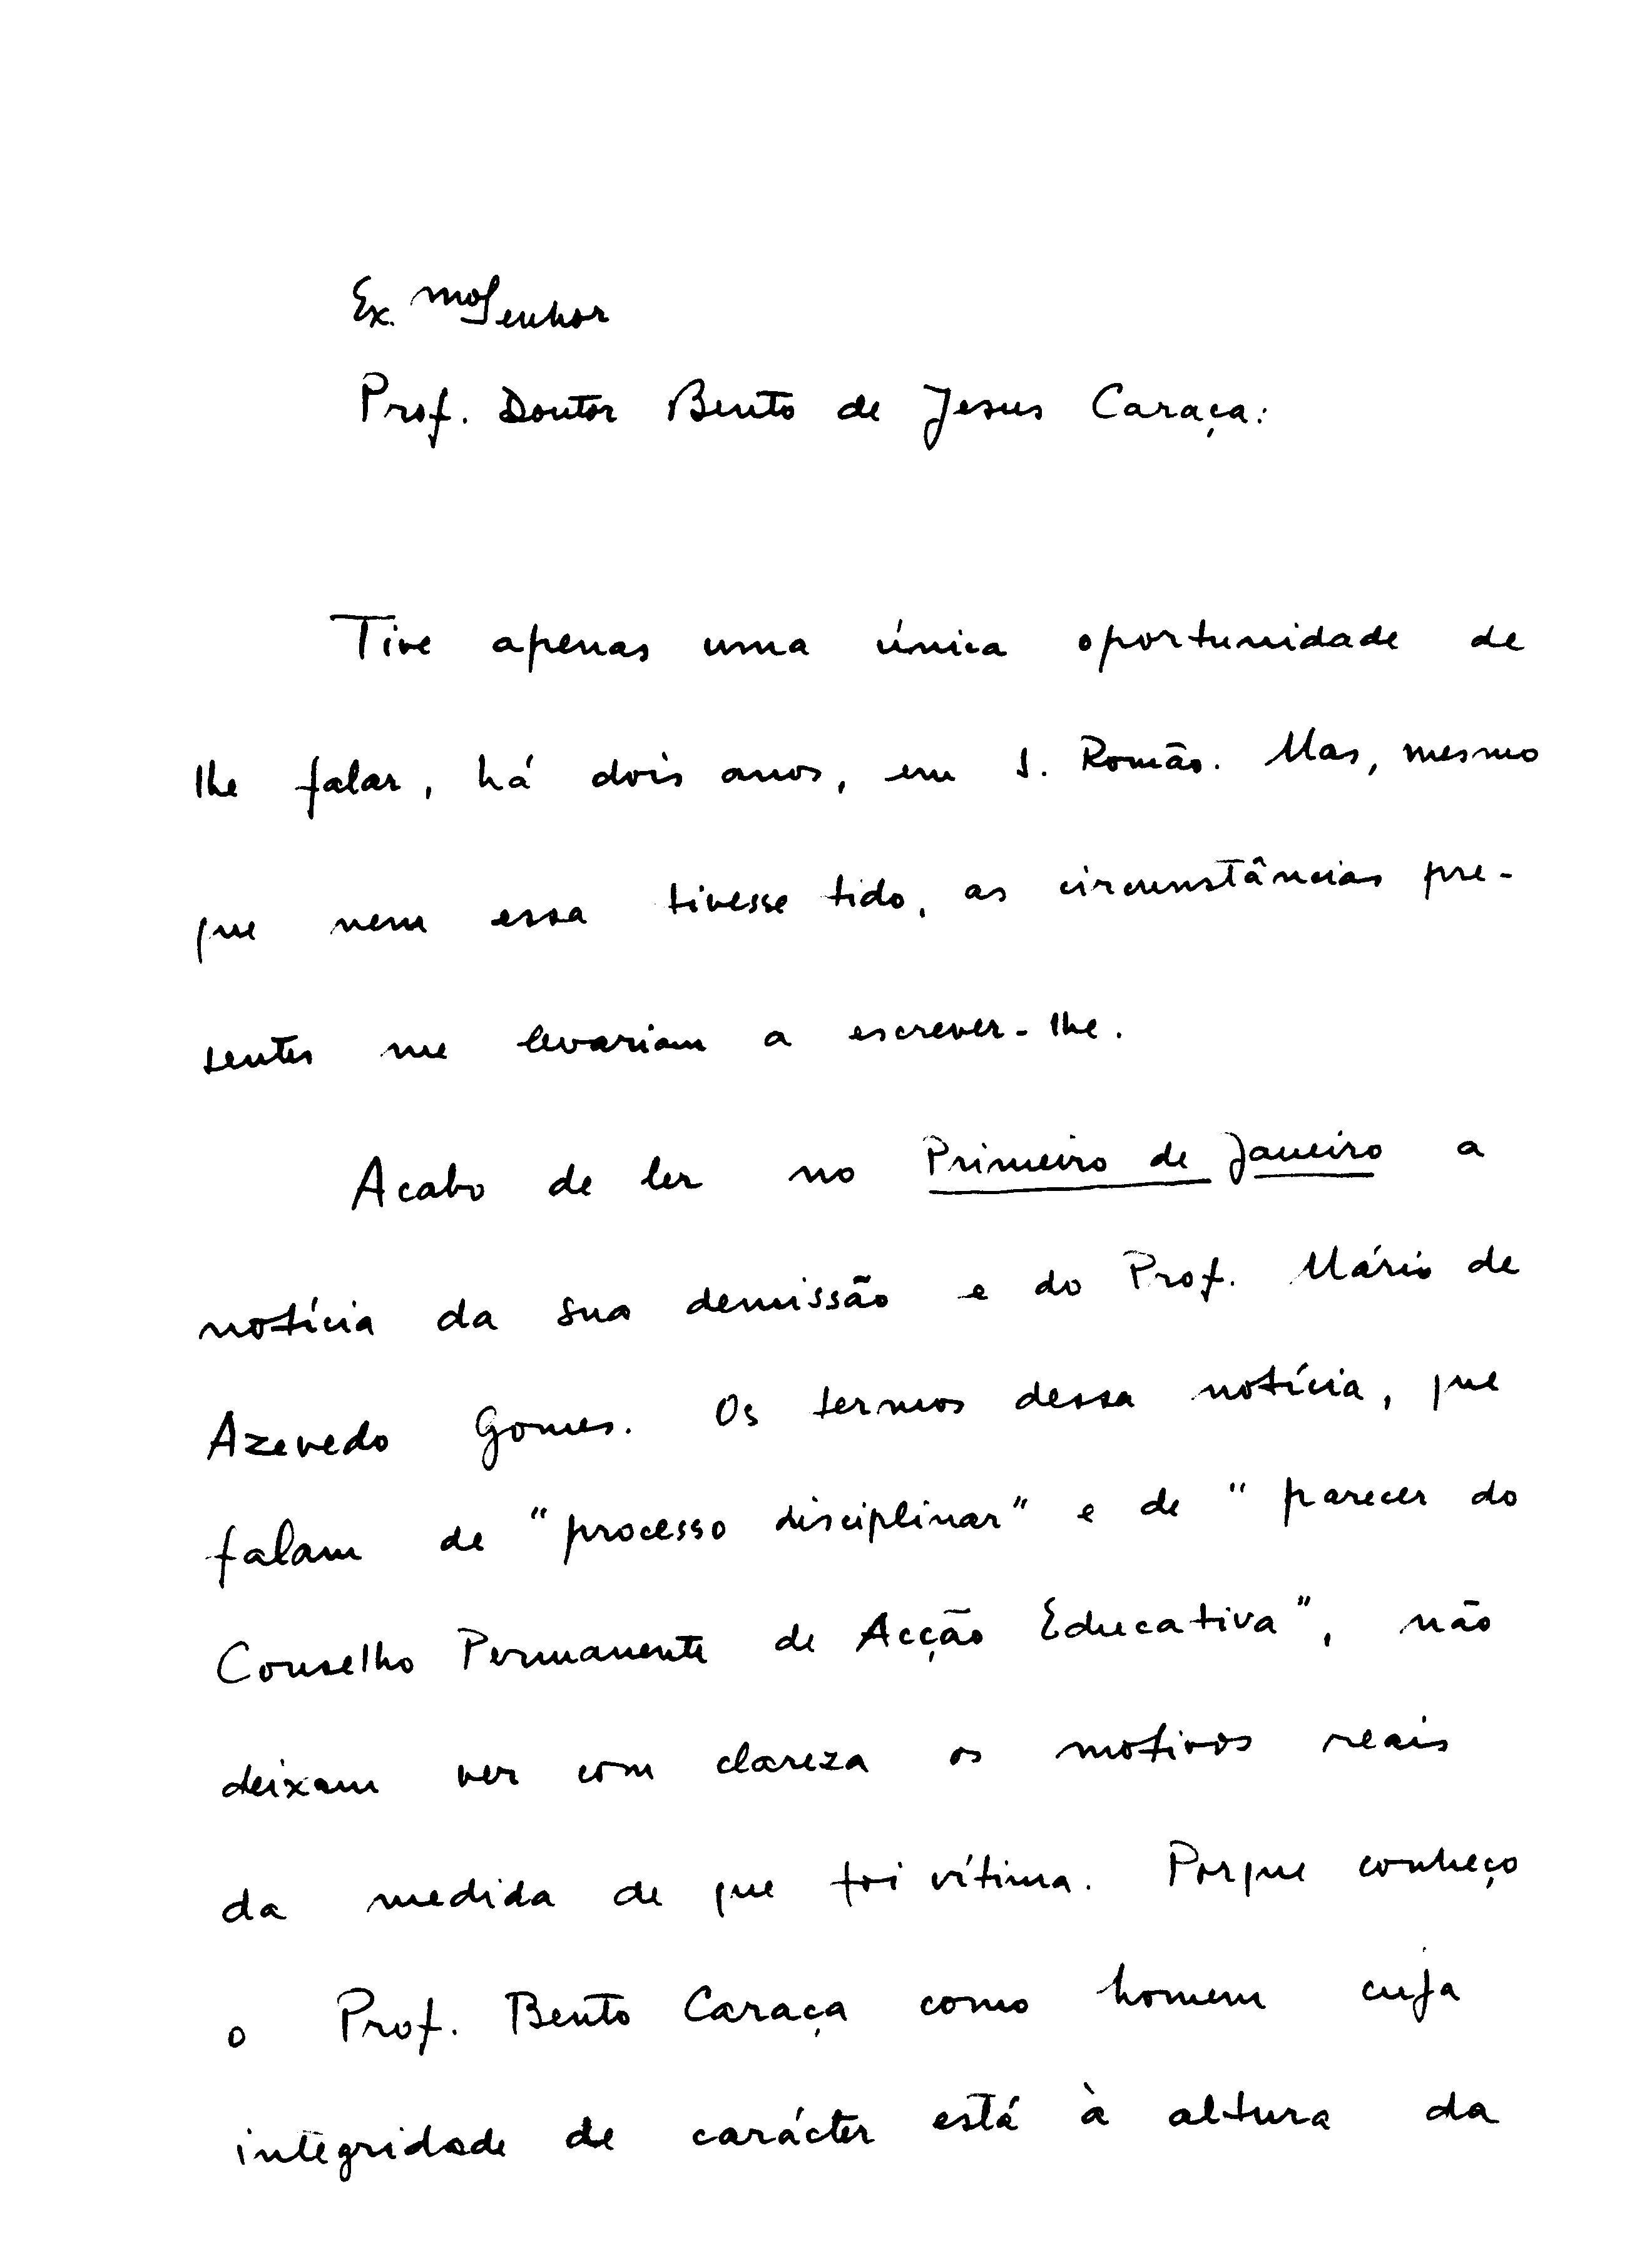 Ex.mo Senhor
Prof. Doutor Bento de Jesus Caraça:
Tive apenas uma única oportunidade de
lhe falar, há dois anos, em S. Romão. Mas, mesmo
que nem essa tivesse tido, as circunstâncias pre-
sentes me levariam a escrever-lhe.
Acabo de ler no Primeiro de Janeiro a
notícia da sua demissão e do Prof. Mário de
Azevedo Gomes. Os termos dessa notícia, que
falam de "processo disciplinar" e de "parecer do
Conselho Permanente de Acção Educativa", não
deixam ver com clareza os motivos reais
da medida de que foi vítima. Porque conheço
o Prof. Bento Caraça como homem cuja
integridade de carácter está à altura da